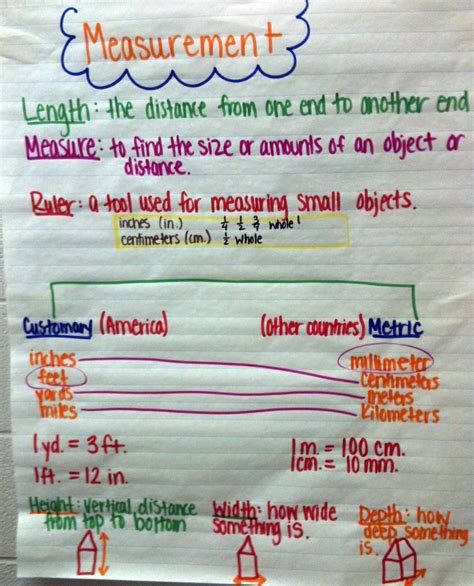 Measurement
Length: the distance from one end to another end
Measure: to find the size or amounts of an object or
distance.
Ruler: a tool used for measuring small objects.
inches (in.) 1/4 1/2 3/4 whole 1
centimeters (cm.) 1/2 whole
Customary (America) (other countries) Metric
inches millimeter
feet centimeters
yards meters
miles Kilometers
1 yd. = 3 ft. 1 m. = 100 cm.
1 ft. = 12 in. 1 cm. = 10 mm.
Height: vertical distance
from top to bottom
Width: how wide
something is.
Depth: how
deep something
is.